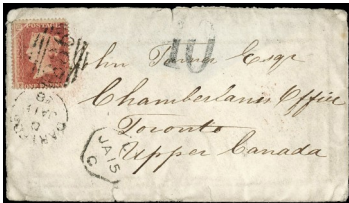 10
John Turner Esqr
Chamberlain's Office
Toronto
Upper Canada
JA 15